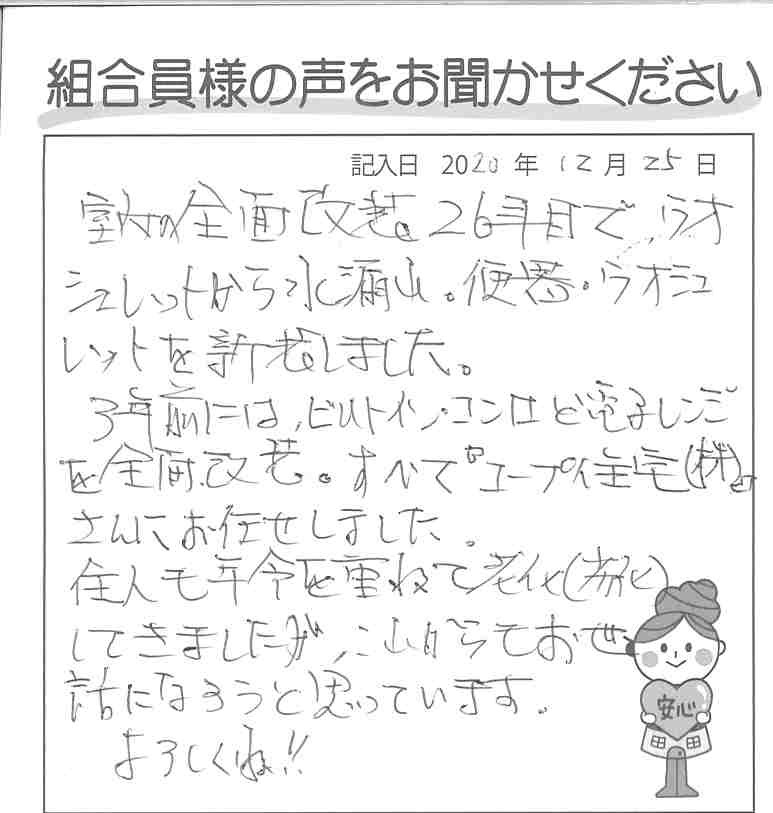 組合員様の声をお聞かせください
記入日 2020 年 12 月 25 日
室内の全面改装。26年目で、ウオ
シュレットから水漏れ。便器・ウオシュ
レットを新装しました。
3年前には、ビルトイン・コンロと電子レンジ
を全面改装。すべて"コープ住宅(株)"
さんにお任せしました。
住人も年令を重ねて老化(劣化)
してきましたが、これからもおせ
話になろうと思っています。
よろしくね!!
安心